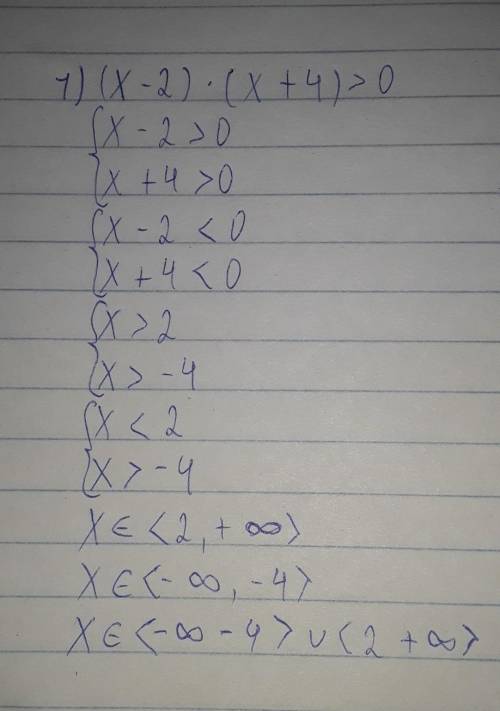 1) (x - 2) · (x + 4) > 0
{x - 2 > 0
{x + 4 > 0
{x - 2 < 0
{x + 4 < 0
{x > 2
{x > -4
{x < 2
{x > -4
x ∈ ⟨2, + ∞⟩
x ∈ ⟨- ∞, -4⟩
x ∈ ⟨-∞ - 4⟩ ∪ ⟨2 + ∞⟩